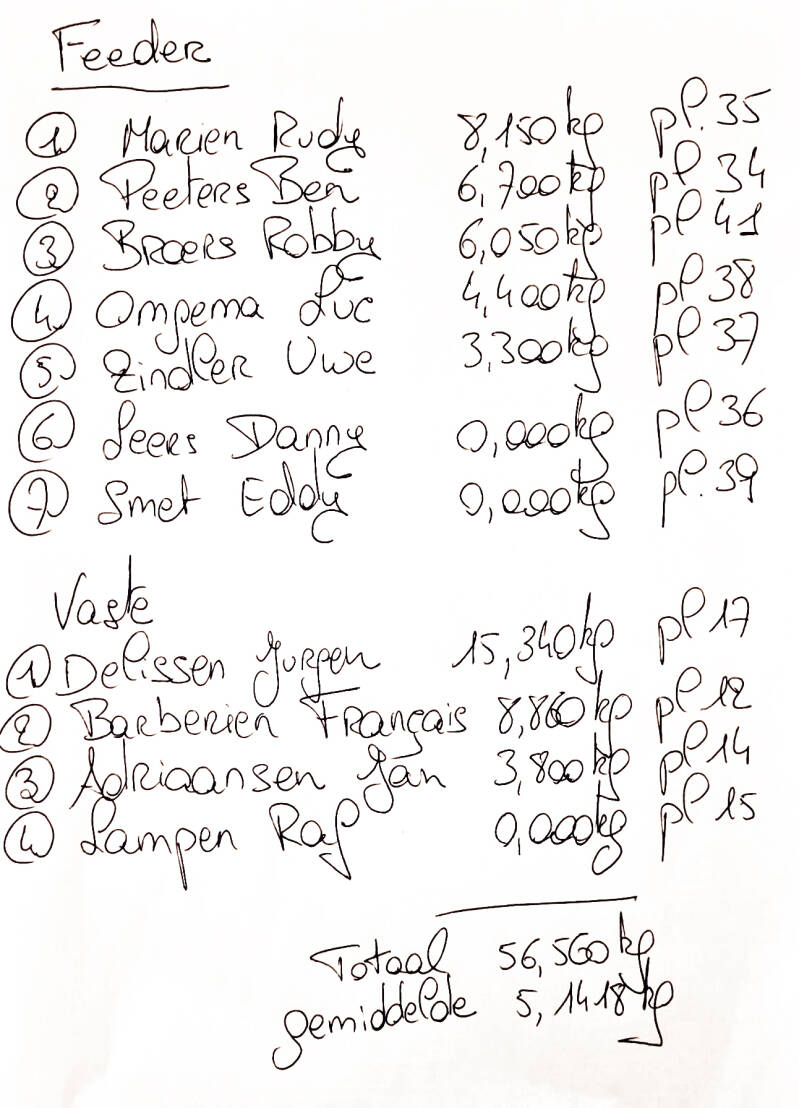 Feeder
1 Marien Rudy 8,150kg pl.35
2 Peeters Ben 6,700kg pl 34
3 Broers Robby 6,050kg pl 41
4 Ompema Luc 4,400kg pl 38
5 Zindler Uwe 3,300kg pl 37
6 Leers Danny 0,000kg pl 36
7 Smet Eddy 0,000kg pl.39
Vaste
1 Delissen Jurgen 15,340kg pl 17
2 Barberien Français 8,860kg pl 12
3 Adriaansen Jan 3,800kg pl 14
4 Lampen Raf 0,000kg pl 15
Totaal 56,560kg
gemiddelde 5,1418kg